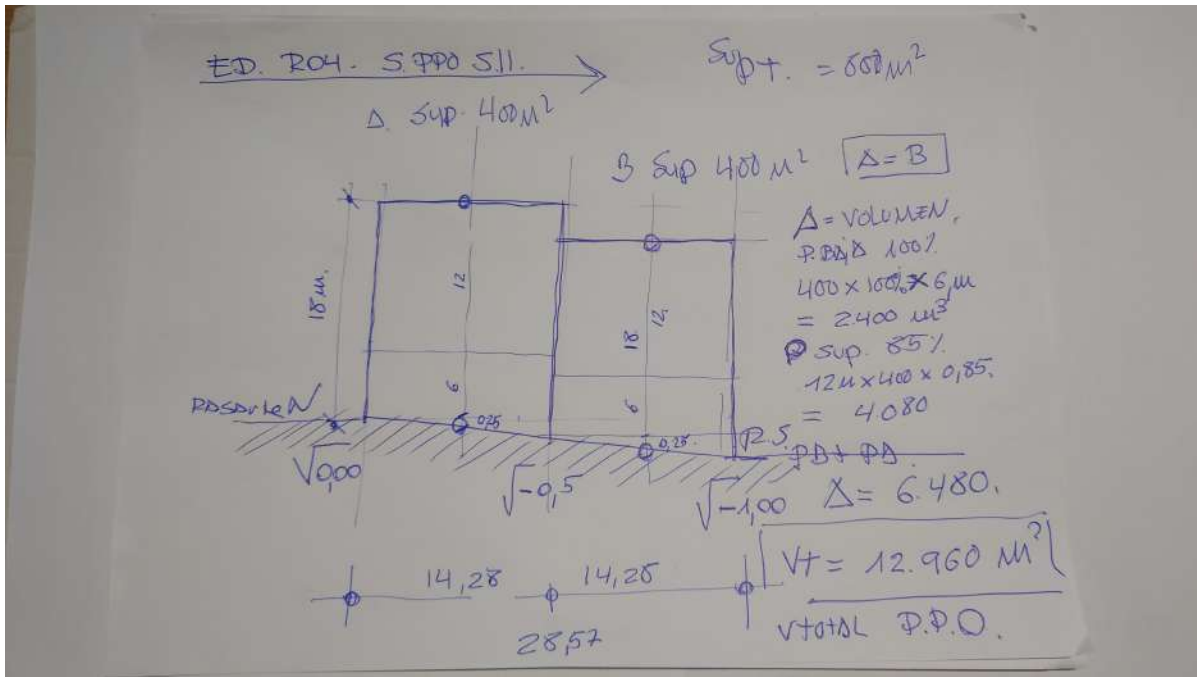 ED. R04. S.PPO S.11.
Sup t. = 800 m²
A. Sup. 400 M²
B Sup 400 M²
A = B
A = VOLUMEN.
P. BAJA 100%.
400 x 100% x 6,m
= 2.400 m³
P Sup. 85%.
12m x 400 x 0,85.
= 4.080
PB + PA.
A = 6.480.
Vt = 12.960 M³
Vtotal P.P.O.
18 m.
12
6
0,25
12.
18
6
0,25.
RASANTE N
R.S.
0,00
-0,5
-1,00
14,28
14,28
28,57